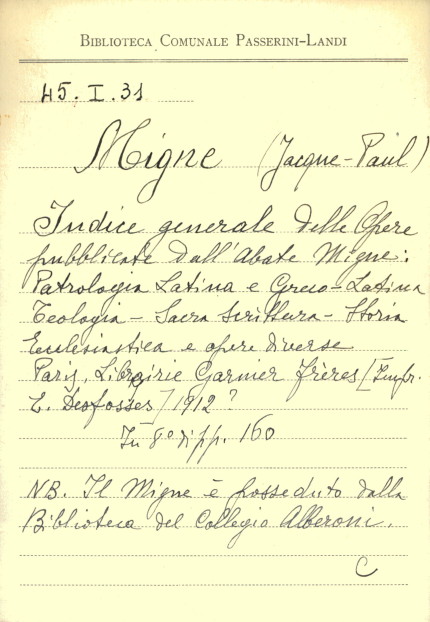 BIBLIOTECA COMUNALE PASSERINI-LANDI
45. I. 31
Migne (Jacque-Paul)
Indice generale delle Opere
pubblicate dall'Abate Migne:
Patrologia Latina e Greco-Latina
Teologia - Sacra Scrittura - Storia
Ecclesiastica e opere diverse
Paris, Librairie Garnier Frères [Impr.
E. Desfosses] 1912?
In 8° di pp. 160
NB. Il Migne è posseduto dalla
Biblioteca del Collegio Alberoni.
C